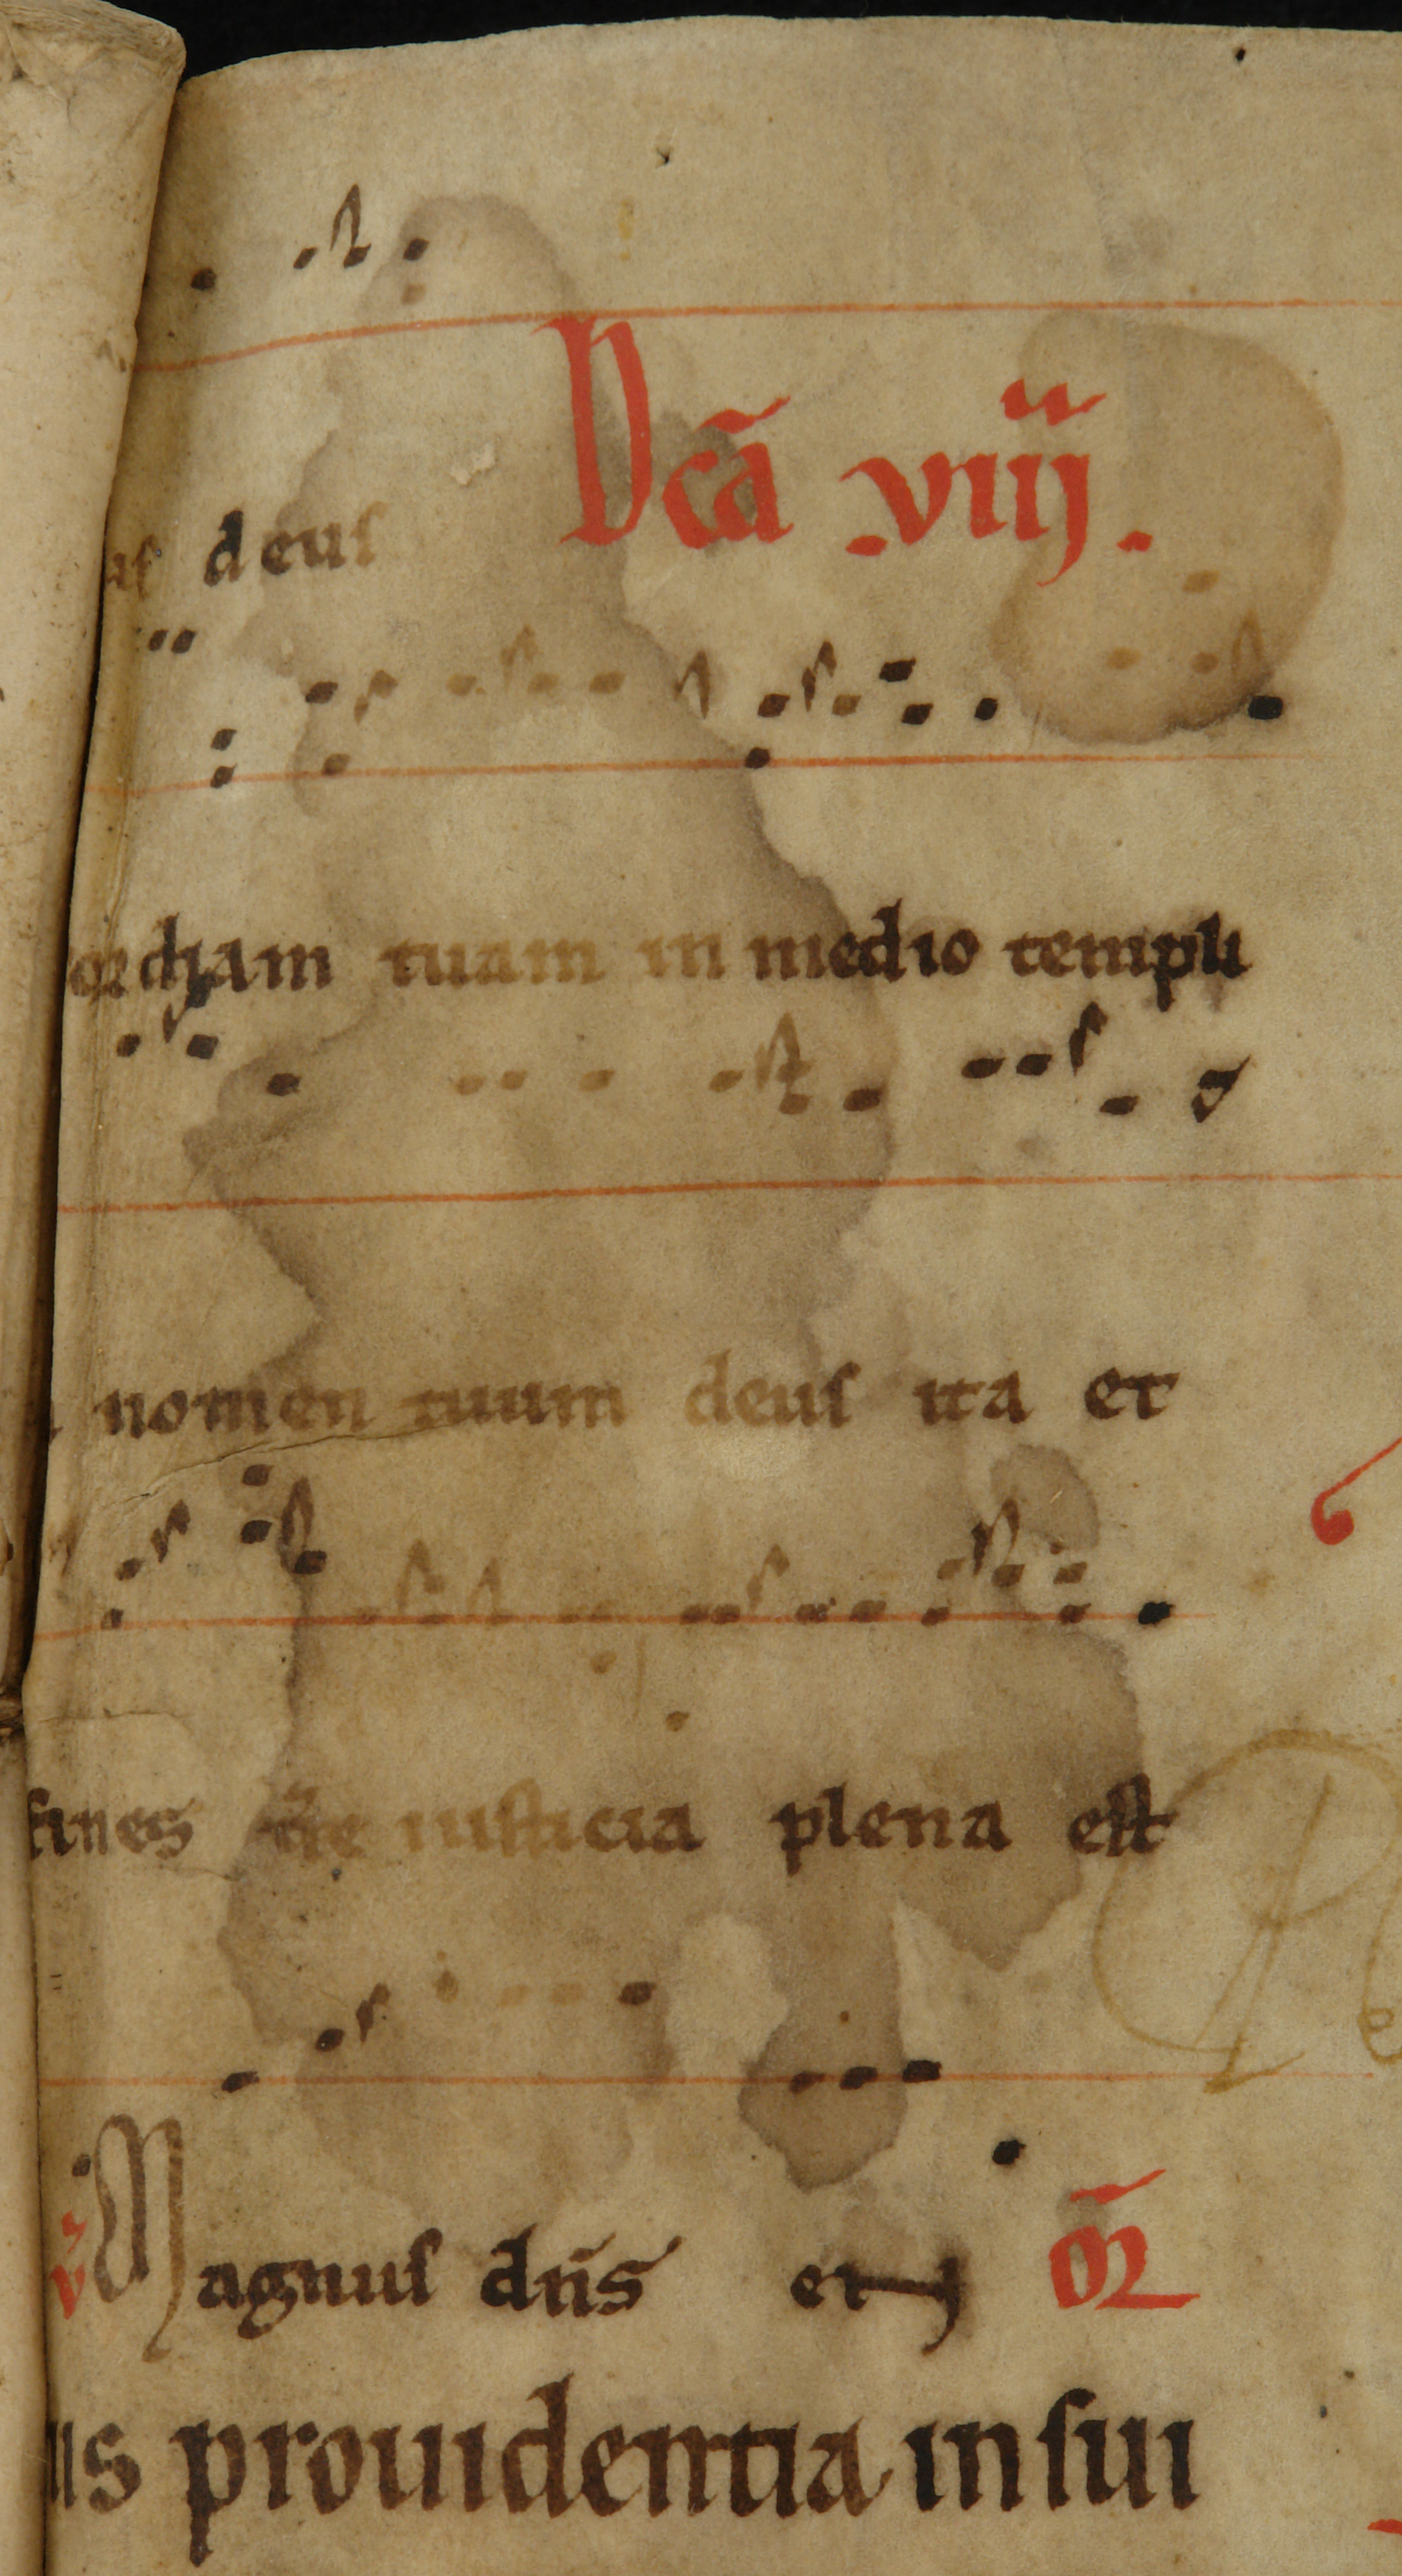 Dcā .viij.
as deus
ordiam tuam in medio templi
nomen tuum deus ita et
fines tr̄e iusticia plena est
v̄ Magnus dn̄s et or̄
us prouidentia in sui